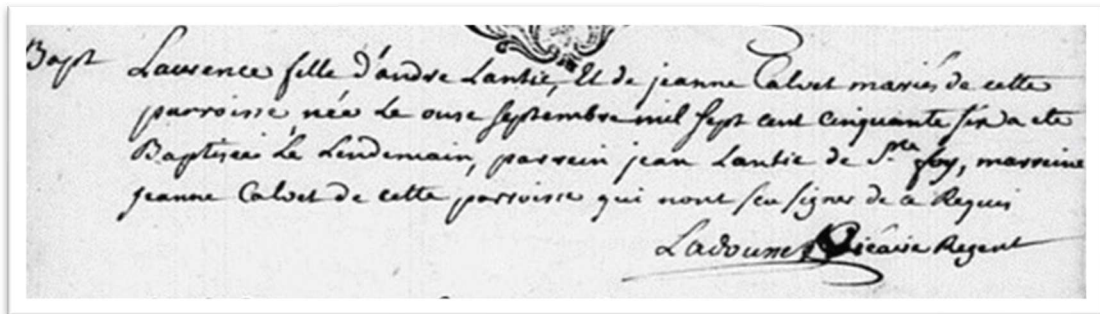 Bapt Laurence fille d'andre Lantic, Et de jeanne Calvet mariés de cette
parroisse née Le onse septembre mil sept cent cinquante six a ete
Baptisée Le Lendemain, parrein jean Lantic de Ste foy, marreine
jeanne Calvet de cette parroisse qui nont sçu signer de ce Requis
Vicaire Regent